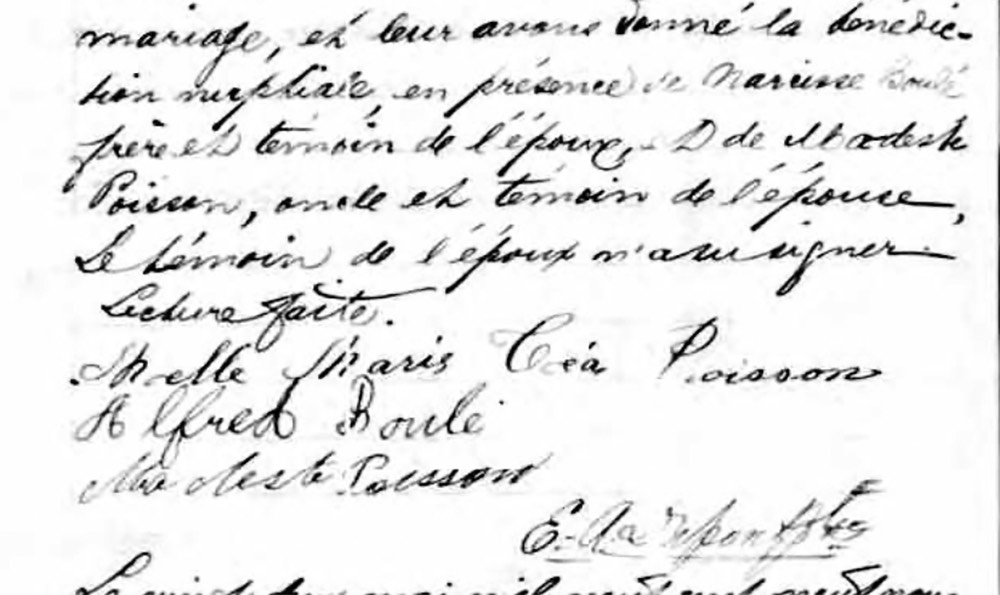 mariage, et leur avons donné la bénédic-
tion nuptiale, en présence de Narcisse Houle
frère et témoin de l'époux, & de Modeste
Poisson, oncle et témoin de l'épouse,
Le témoin de l'époux n'a su signer
Lecture faite.
Melle Maris Poisson
Alfred Houle
Modeste Poisson
E. A.
Le mai mil neuf cent